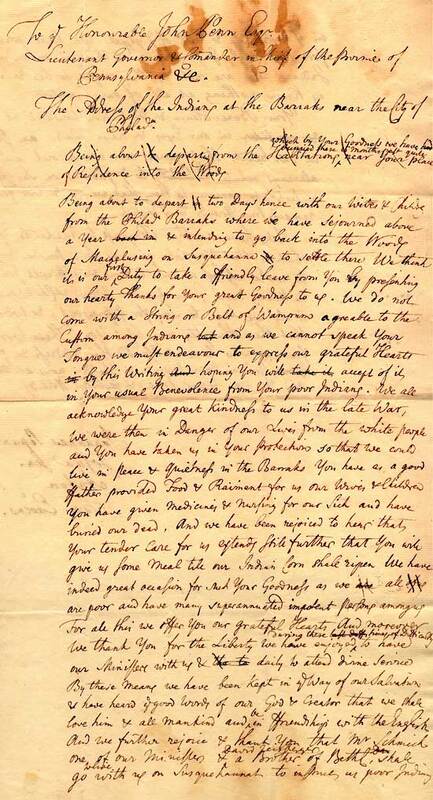 To ye Honourable John Penn Esqr
Lieutenant Governor & Comander in Chief of the Province of
Pennsylvania &c.
The Adress of the Indians at the Barraks near the City of
Philada.
which by Your Goodness we have had
Being about to departe from the Habitations, near Your place
of Residence into the Woods
Being about to depart two Days hence with our Wives & Children
from the Philad. Barraks where we have sejourned above
a Year & intending to go back into the Woods
of Machelusing on Susquehanna & to settle there We think
it is our first Duty to take a ffriendly leave from You by presenting
our hearty Thanks for Your great Goodness to us. We do not
come with a String or Belt of Wampum agreable to the
Custom among Indians but and as we cannot speak Your
Tongues we must endeavour to express our grateful Hearts
by this Writing and hoping You will take it accept of it
in Your usual Benevolence from Your poor Indians. We all
acknowledge Your great kindness to us in the late War,
We were then in Danger of our Lives from the white people
and You have taken us in Your Protection so that we could
live in Peace & Quietness in the Barraks You have as a good
ffather provided Food & Raiment for us our Wives & Children
You have given Medicines & Nursing for our Sick and have
buried our dead. And we have been rejoiced to hear that
Your tender Care for us extends still further that You will
give us some Meal till our Indian Corn shall ripen We have
indeed great occasion for such Your Goodness as we are all
are poor and have many superannuated impotent persons among us
For all this we offer You our grateful Hearts And moreover
during these days of difficulty
We thank You for the Liberty we have enjoyed to have
our Ministers with us & daily to attend divine Service
By these Means we have been kept in ye Way of our Salvation
& have heard ye good words of our God & Creator that we shall
love him & all Mankind and be in ffriendship with the English
And we further rejoice & thank You that Mr Schmick
one of our Ministers & David Zeisberger a Brother of Bethl. shall
go with us on Susquehannah to instruct us poor Indians